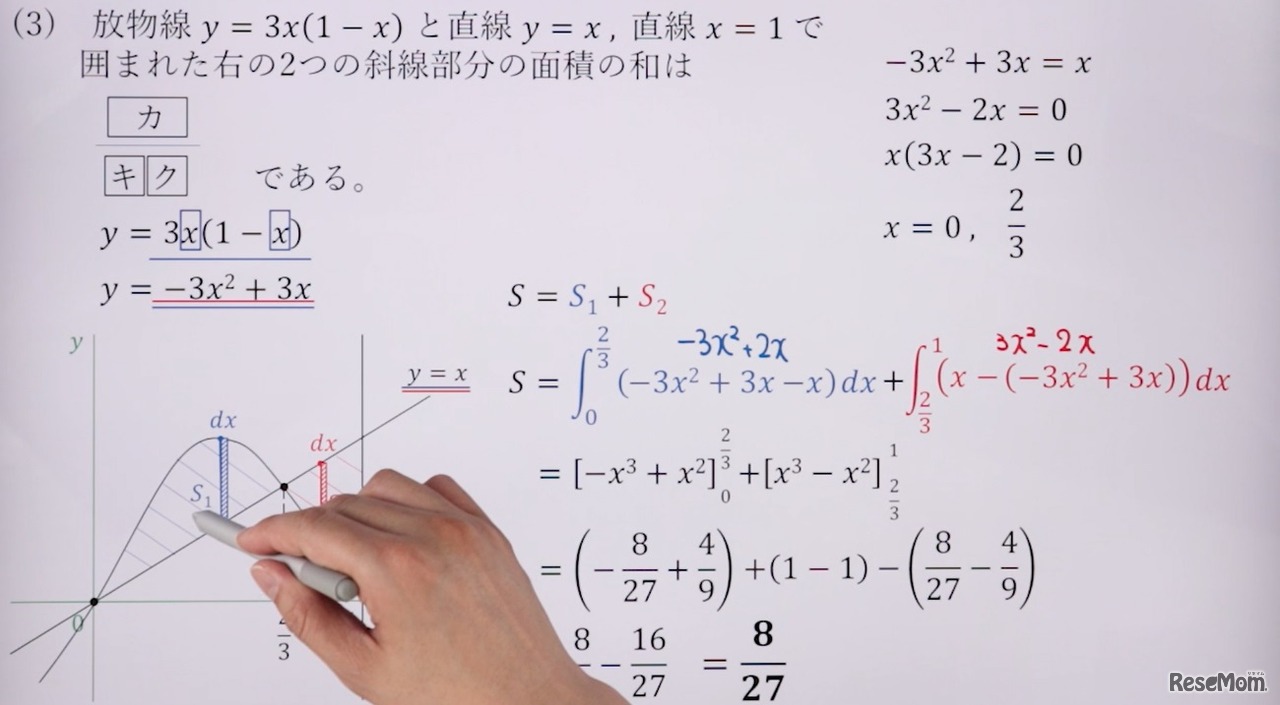 (3) 放物線 y = 3x(1 − x) と直線 y = x , 直線 x = 1 で
囲まれた右の2つの斜線部分の面積の和は
カ
キク である。
y = 3x(1 − x)
y = −3x² + 3x
−3x² + 3x = x
3x² − 2x = 0
x(3x − 2) = 0
x = 0 , 2/3
S = S₁ + S₂
−3x²+2x 3x²−2x
S = ∫₀^(2/3) (−3x² + 3x − x)dx + ∫_(2/3)^1 (x − (−3x² + 3x))dx
= [−x³ + x²]₀^(2/3) + [x³ − x²]_(2/3)^1
= (−8/27 + 4/9) + (1 − 1) − (8/27 − 4/9)
8 − 16/27 = 8/27
y
y = x
dx
dx
S₁
0
3
ReseMom